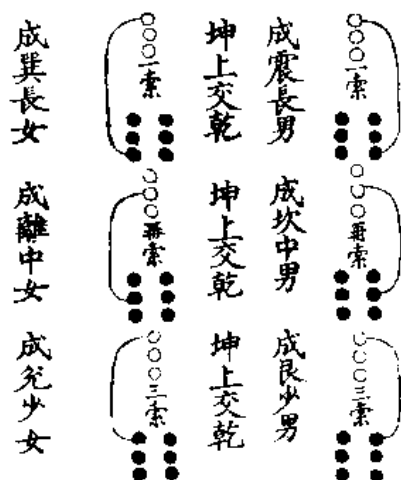 一索
成震長男
坤上交乾
一索
成巽長女
再索
成坎中男
坤上交乾
再索
成離中女
三索
成艮少男
坤上交乾
三索
成兌少女